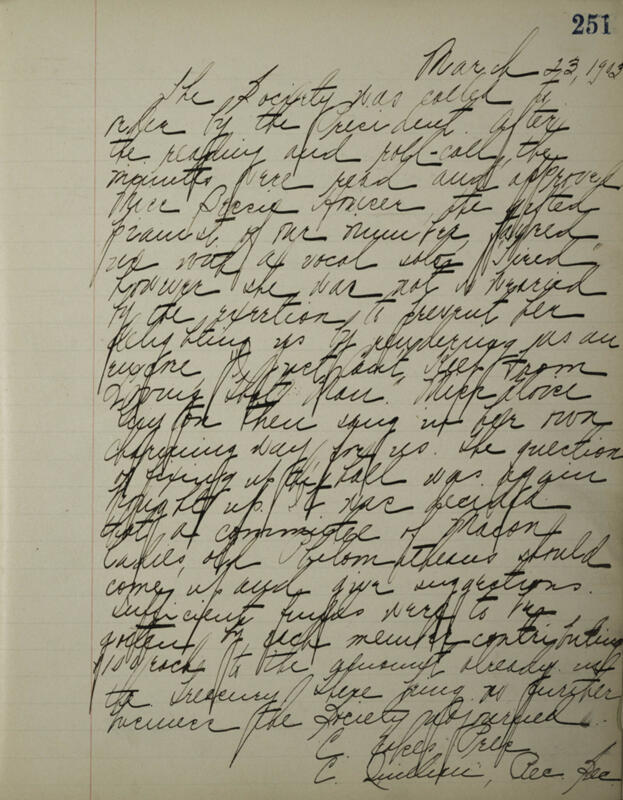 251
March 23, 1913
The Society was called to
order by the President. After
the reading and roll-call, the
minutes were read and approved
Miss Bessie the gifted
pianist of our number favored
us with a vocal solo "Tired"
however she was not so wearied
by the exertion to prevent her
delighting us by rendering us an
encore "I Just Can't Keep from
Loving That Man." Miss
then sang in her own
charming way for us. The question
of fixing up the hall was again
brought up. It was decided
that a committee of Macon
ladies, old Philomatheans should
come up and give suggestions.
Sufficient funds were to be
gotten by each member contributing
each to the amount already in
the Treasury. There being no further
business the Society adjourned.
E. Pres.
C. Quillian, Rec. Sec.